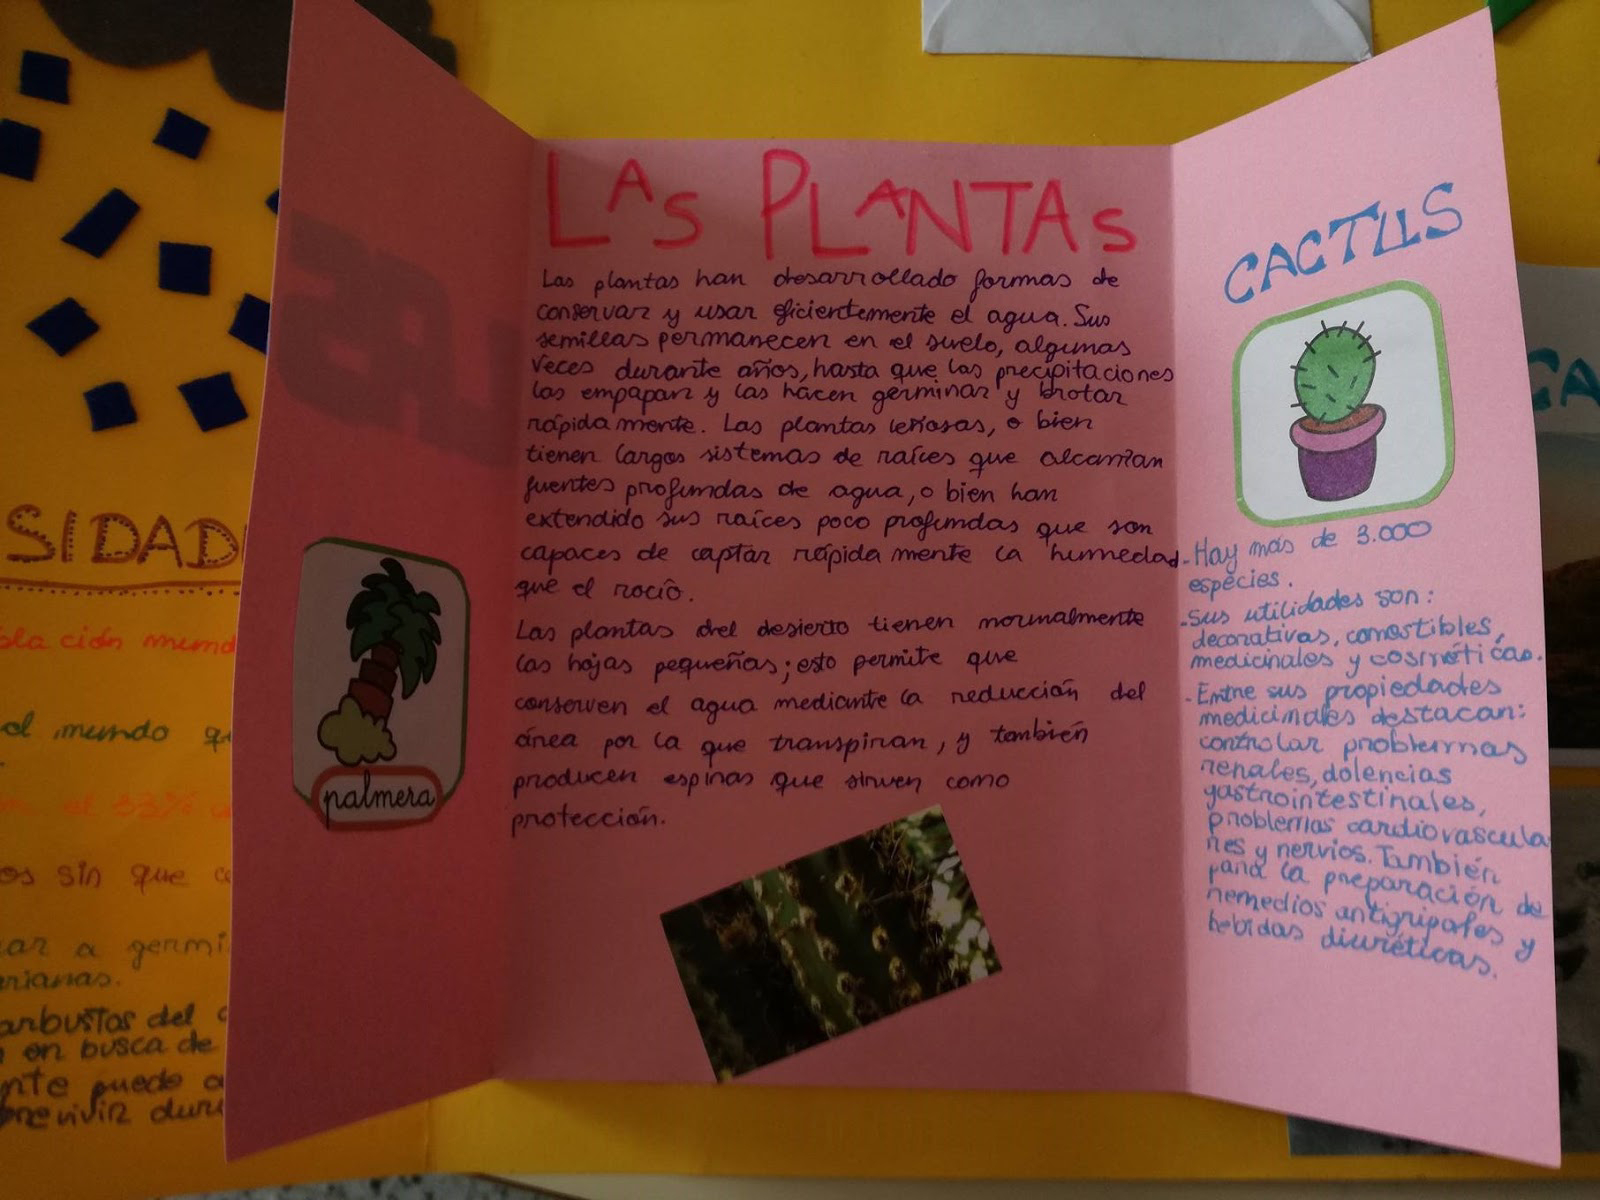 LAS PLANTAS
Las plantas han desarrollado formas de
conservar y usar eficientemente el agua. Sus
semillas permanecen en el suelo, algunas
veces durante años, hasta que las precipitaciones
las empapan y las hacen germinar y brotar
rápidamente. Las plantas leñosas, o bien
tienen largos sistemas de raíces que alcanzan
fuentes profundas de agua, o bien han
extendido sus raíces poco profundas que son
capaces de captar rápidamente la humedad
que el rocío.
Las plantas del desierto tienen normalmente
las hojas pequeñas; esto permite que
conserven el agua mediante la reducción del
área por la que transpiran, y también
producen espinas que sirven como
protección.
palmera
CACTUS
- Hay más de 3.000
especies.
- Sus utilidades son:
decorativas, comestibles,
medicinales y cosméticas.
- Entre sus propiedades
medicinales destacan:
controlar problemas
renales, dolencias
gastrointestinales,
problemas cardiovascula
res y nervios. También
para la preparación de
remedios antigripales y
bebidas diuréticas.
SIDAD
mund
al mundo
el 33%
os sin que
ar a germi
arbustos del
en busca de
nte puede
CA